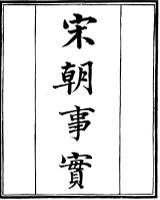 宋朝事實